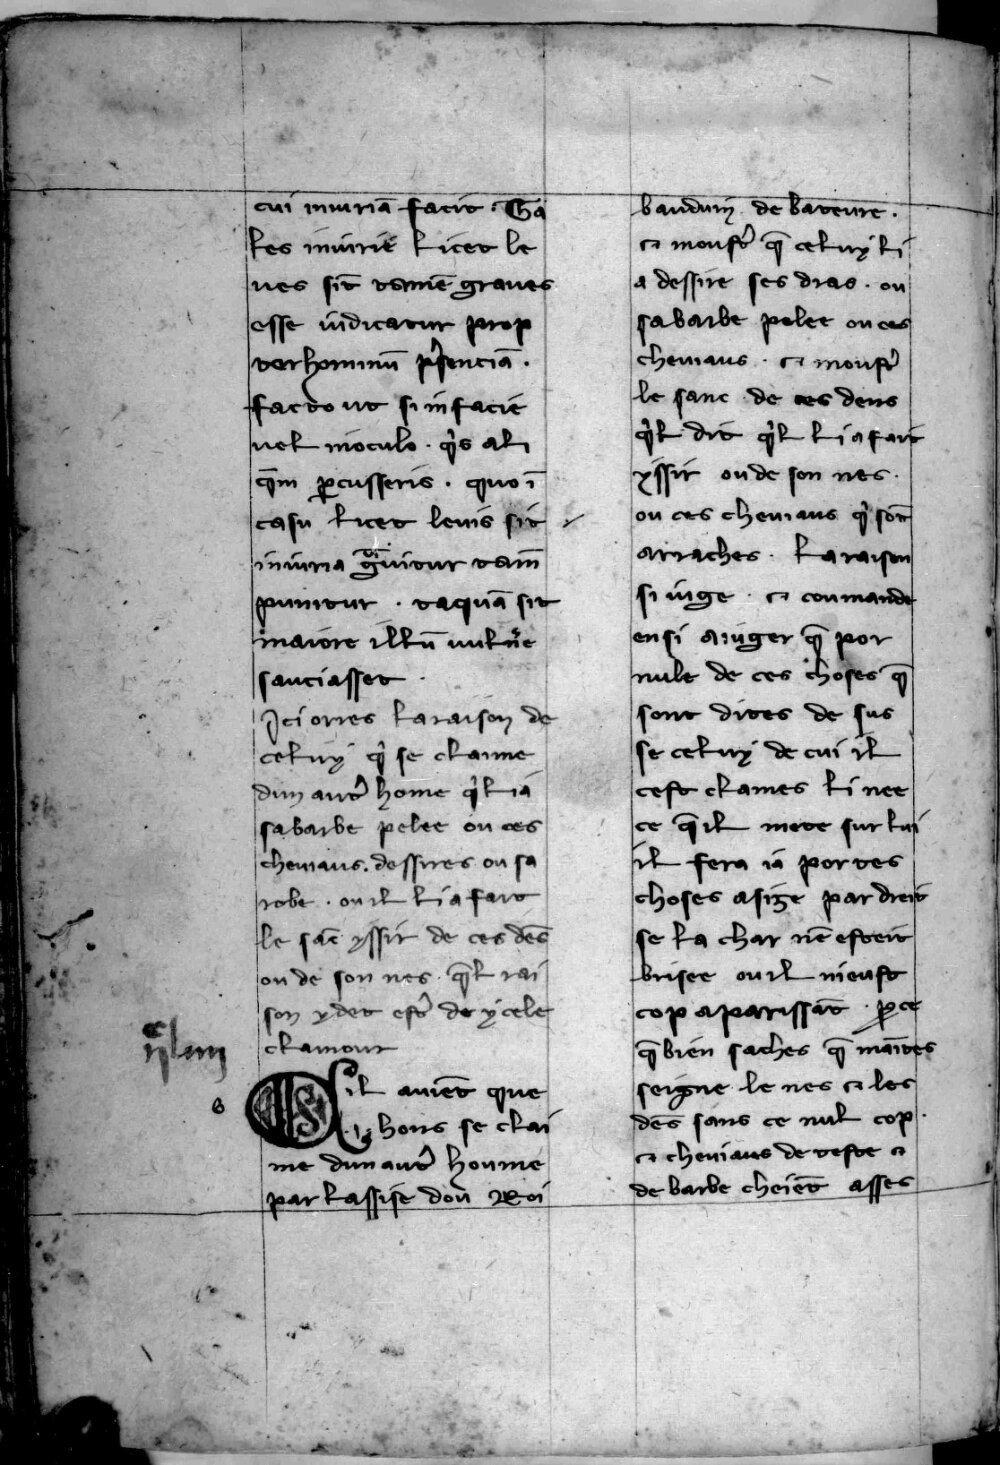 cui iniuriā facit · Ta
les iniurie licet le
ues sīt tamē graues
esse iudicātur prop
ter hominū p̄senciā ·
facto ut si in facie
uel in oculo · q̍s ali
q̄m ꝑcusseris · quo ī
casu licet leuis sit
iniuria grauit̍ur tam̄
punitur · taquā sit
maiore illū uuln̄e
sauciasset ·
Ici orres la raison de
celuy q̍ se claime
dun autr̍ home q̍l ia
sa barbe pelee ou ces
cheuiaus · dessires ou sa
robe · ou il li a fait
le sāc yssir de ces dēs
ou de son nes · q̄l rai
son y det estr̍ de ycele
clamour
Sil auiēt que
·i· hons se clai
me dun autr̍ houme
par lassise dou Roi
bauduin de bateure ·
⁊ moustr̍ q̄ celuy li
a dessire ses dras · ou
sa barbe pelee ou ces
cheuiaus · ⁊ moustr̍
le sanc de ces dens
q̍l dit q̍l li a fait
yssir ou de son nes ·
ou ces cheuiaus q̍ sōt
arraches · La raison
si iuge · ⁊ coumande
ensi a iuger q̄ por
nule de ces choses q̄
sont dites de sus
se celuy de cui il
cest clames li nee
ce q̄ il mete sur lui
il fera ia por tes
choses asige par dreit
se la char nē esteit
brisee ou il nieust
cop aparissāt · ꝑ ce
q̄ bien saches q̄ maītes
seigne le nes ⁊ les
dēs sans ce nul cop ·
⁊ cheuiaus de teste ⁊
de barbe cheiēt asses